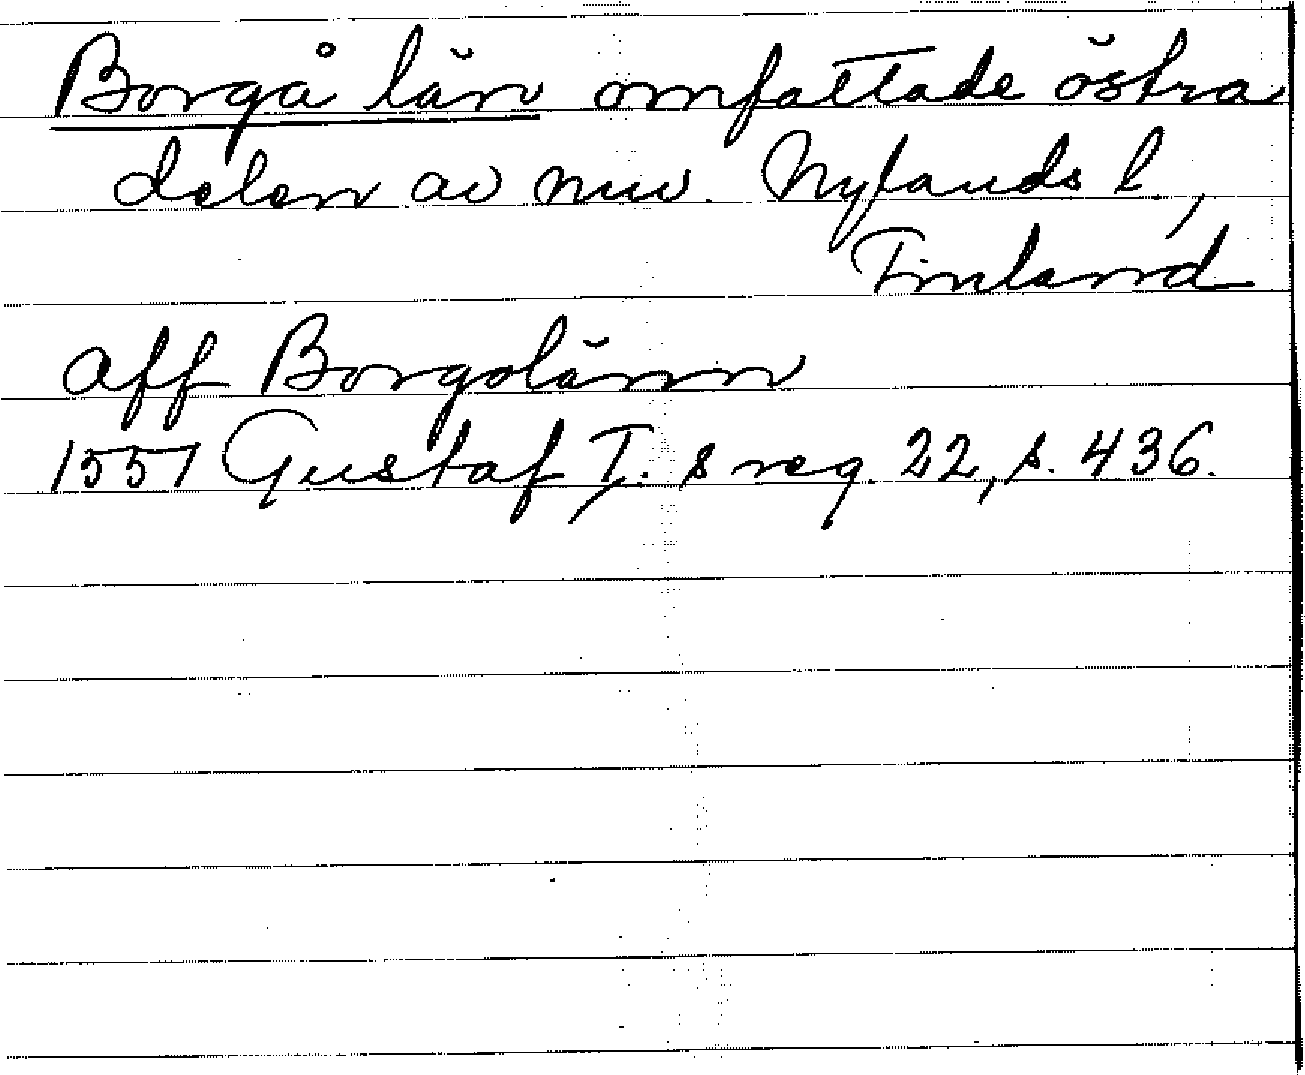 Borgå län omfattade östra
delen av nuv. Nylands l.,
Finland
aff Borgolänn
1557 Gustaf I:s reg. 22, s. 436.